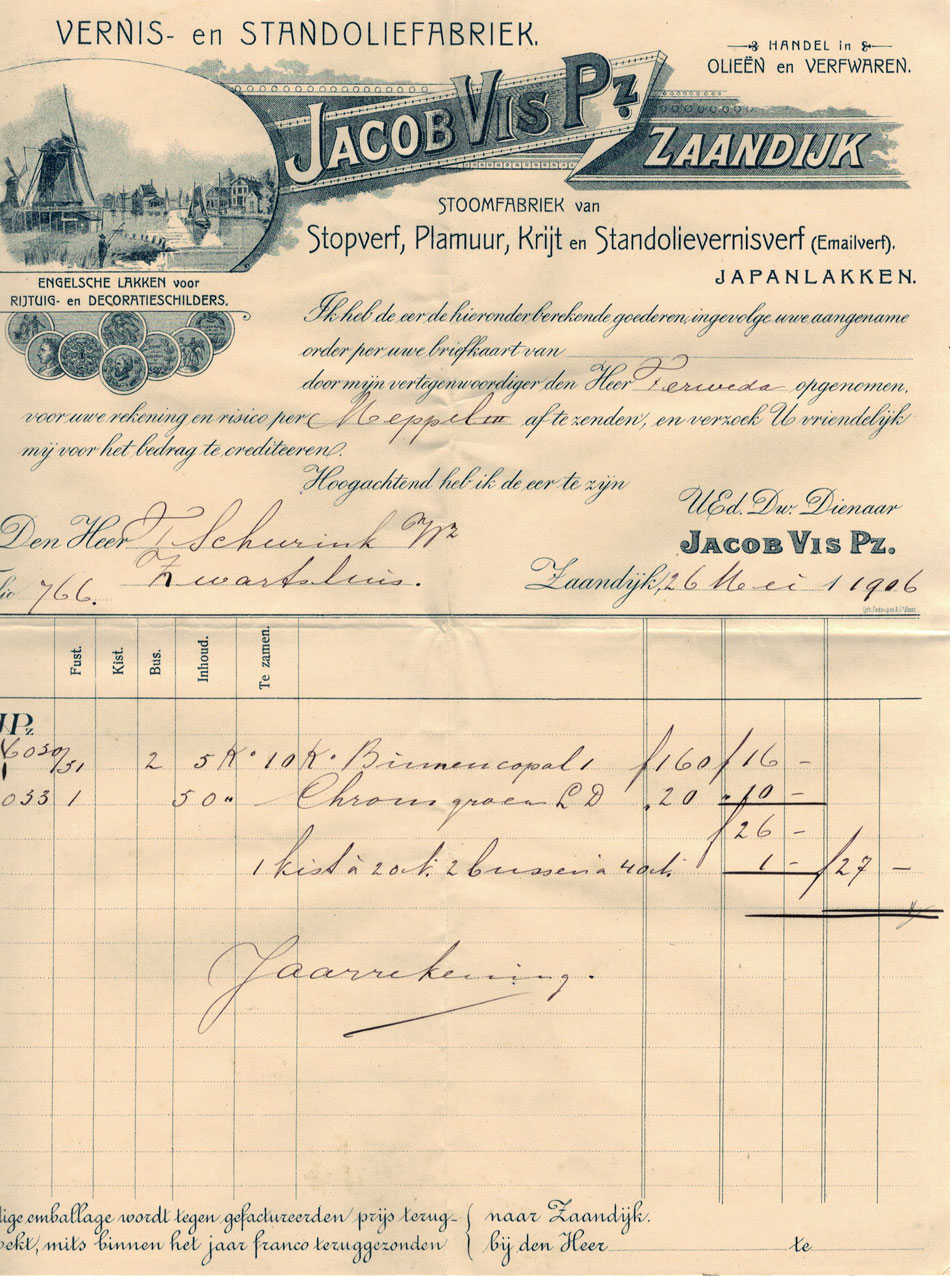 VERNIS- en STANDOLIEFABRIEK.
HANDEL in
OLIEËN en VERFWAREN.
JACOB VIS Pz.
ZAANDIJK
STOOMFABRIEK van
Stopverf, Plamuur, Krijt en Standolievernisverf (Emailverf).
JAPANLAKKEN.
ENGELSCHE LAKKEN voor
RIJTUIG- en DECORATIESCHILDERS.
Ik heb de eer de hieronder berekende goederen, ingevolge uwe aangename
order per uwe briefkaart van
door mijn vertegenwoordiger den Heer Ferweda opgenomen,
voor uwe rekening en risico per Meppel III af te zenden, en verzoek U vriendelijk
mij voor het bedrag te crediteeren.
Hoogachtend heb ik de eer te zijn
UEd. Dw. Dienaar
JACOB VIS Pz.
Den Heer T Schurink Wz
Zwartsluis.
766.
Zaandijk, 26 Mei 1906
Fust. Kist. Bus. Inhoud. Te zamen.
JPz
6030/31 2 5 Ko 10 Ko Binnencopal 1 f 160 f 16 -
033 1 50 " Chroomgroen LD " 20 " 10 -
f 26 -
1 kist à 20 ct. 2 bussen à 40 ct. 1 - f 27 -
Jaarrekening.
dige emballage wordt tegen gefactureerden prijs terug- { naar Zaandijk.
oekt, mits binnen het jaar franco teruggezonden { bij den Heer te